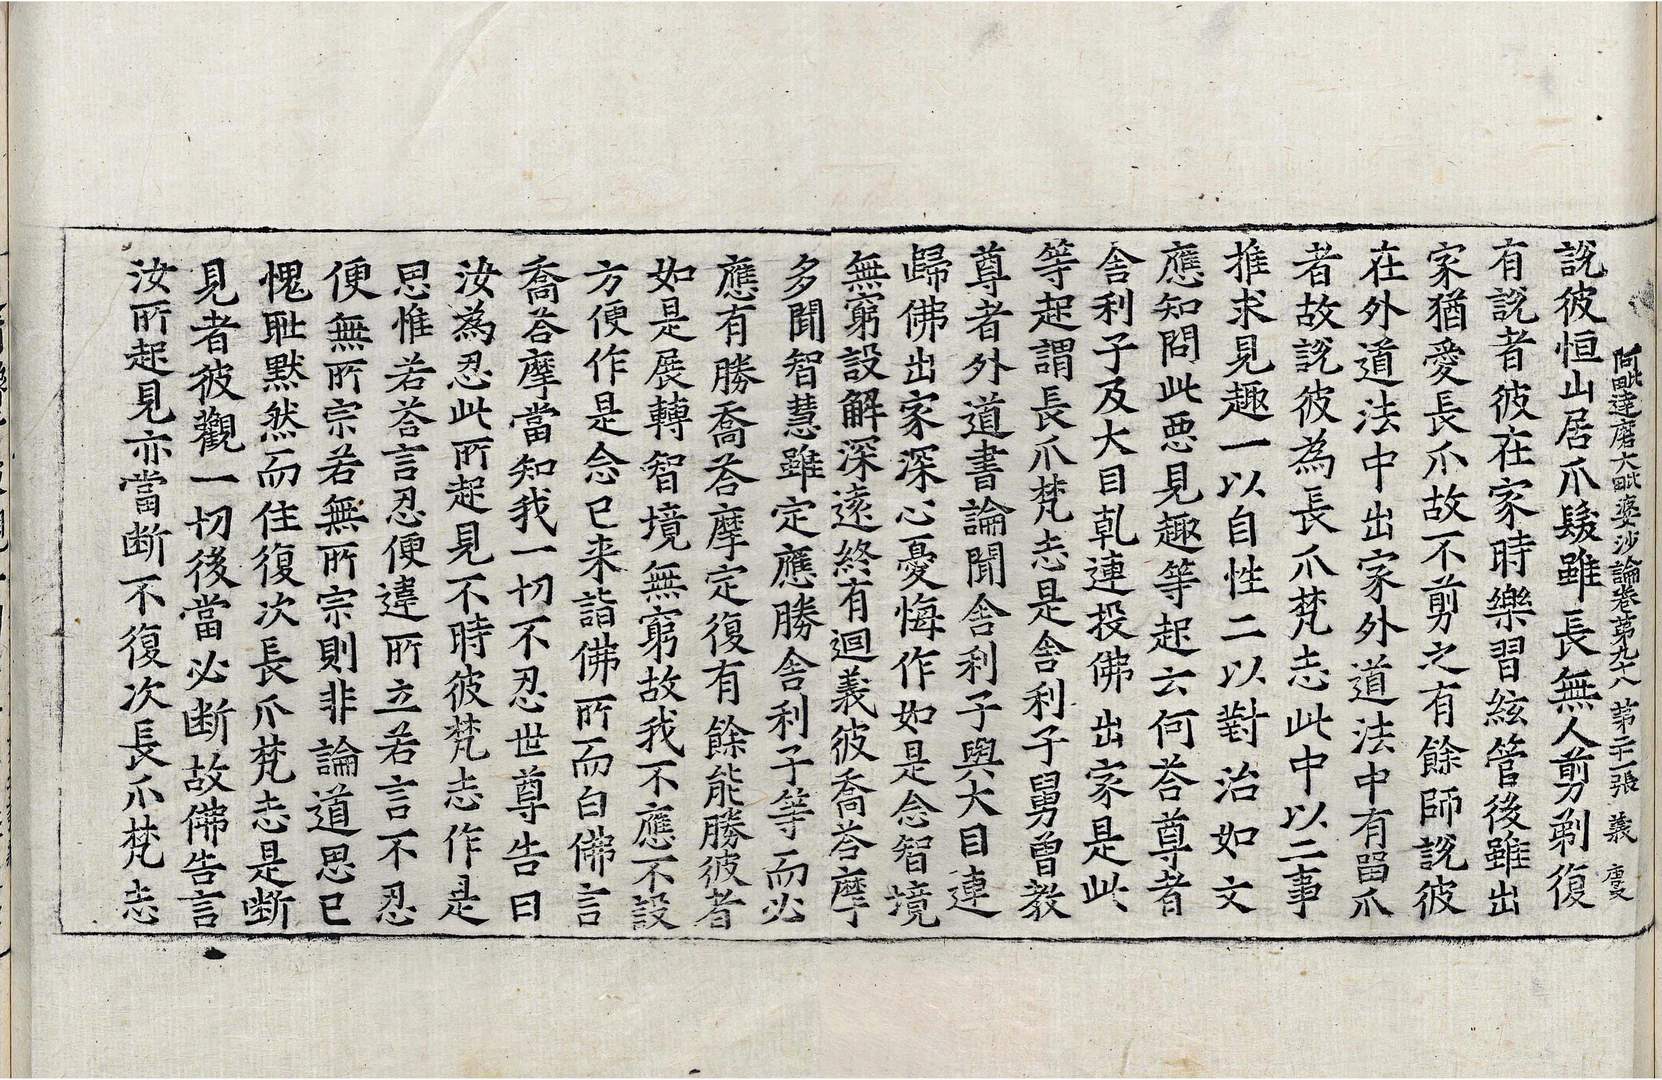 阿毗達磨大毗婆沙論卷第九十八 第二十一張 義
說彼恒山居爪髮雖長無人剪剃復
有說者彼在家時樂習絃管後雖出
家猶愛長爪故不剪之有餘師說彼
在外道法中出家外道法中有留爪
者故說彼為長爪梵志此中以二事
推求見趣一以自性二以對治如文
應知問此惡見趣等起云何荅尊者
舍利子及大目乹連投佛出家是此
等起謂長爪梵志是舍利子舅曾教
尊者外道書論聞舍利子與大目連
歸佛出家深心憂悔作如是念智境
無窮設解深遠終有迴義彼喬荅摩
多聞智慧雖定應勝舍利子等而必
應有勝喬荅摩定復有餘能勝彼者
如是展轉智境無窮故我不應不設
方便作是念已来詣佛所而白佛言
喬荅摩當知我一切不忍世尊告曰
汝為忍此所起見不時彼梵志作是
思惟若荅言忍便違所立若言不忍
便無所宗若無所宗則非論道思已
愧耻默然而住復次長爪梵志是斷
見者彼觀一切後當必断故佛告言
汝所起見亦當断不復次長爪梵志